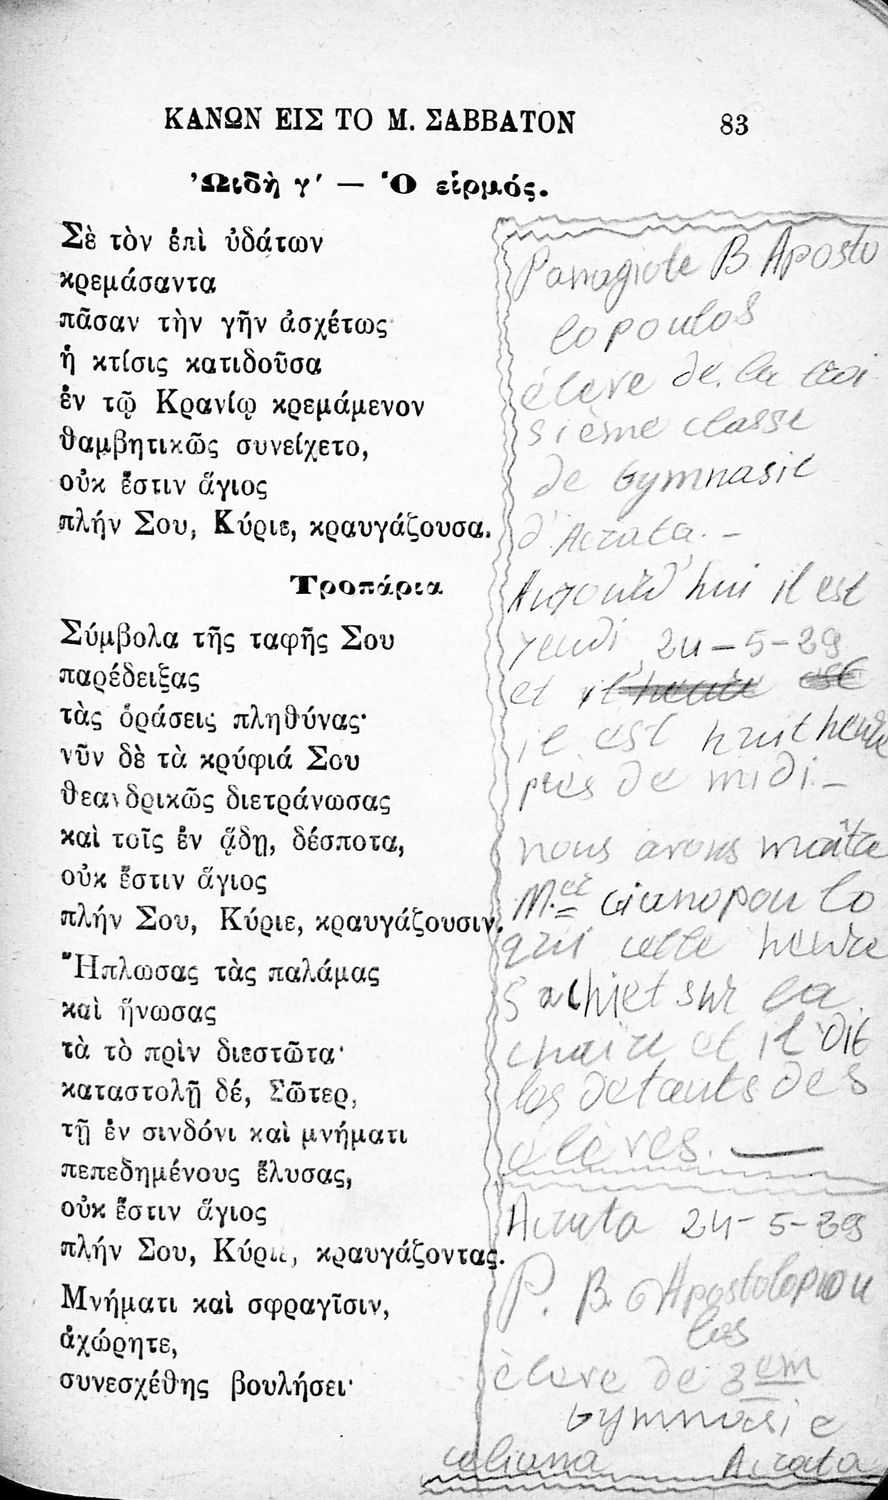 ΚΑΝΩΝ ΕΙΣ ΤΟ Μ. ΣΑΒΒΑΤΟΝ 83
Ὠιδὴ γ′ — Ὁ εἱρμός.
Σὲ τὸν ἐπὶ ὑδάτων
κρεμάσαντα
πᾶσαν τὴν γῆν ἀσχέτως
ἡ κτίσις κατιδοῦσα
ἐν τῷ Κρανίῳ κρεμάμενον
θαμβητικῶς συνείχετο,
οὐκ ἔστιν ἅγιος
πλήν Σου, Κύριε, κραυγάζουσα.
Τροπάρια
Σύμβολα τῆς ταφῆς Σου
παρέδειξας
τὰς ὁράσεις πληθύνας·
νῦν δὲ τὰ κρύφιά Σου
θεανδρικῶς διετράνωσας
καὶ τοῖς ἐν ᾅδῃ, δέσποτα,
οὐκ ἔστιν ἅγιος
πλήν Σου, Κύριε, κραυγάζουσιν.
Ἥπλωσας τὰς παλάμας
καὶ ἥνωσας
τὰ τὸ πρὶν διεστῶτα·
καταστολῇ δέ, Σῶτερ,
τῇ ἐν σινδόνι καὶ μνήματι
πεπεδημένους ἔλυσας,
οὐκ ἔστιν ἅγιος
πλήν Σου, Κύριε, κραυγάζοντας.
Μνήματι καὶ σφραγῖσιν,
ἀχώρητε,
συνεσχέθης βουλήσει·
Panagiote B Aposto
lopoulos
élève de la troi
sième classe
de Gymnasie
d'Acrata. -
Aujourd'hui il est
jeudi, 24-5-39
et
il est huit heure
près de midi. -
nous avons maître
M. Gianopoulo
qui cette heure
s'achiet sur la
chaire et il dit
les defauts des
élèves. —
Acrata 24-5-39
P. B. Apostolopou
los
élève de 3em
Gymnasie
Acrata